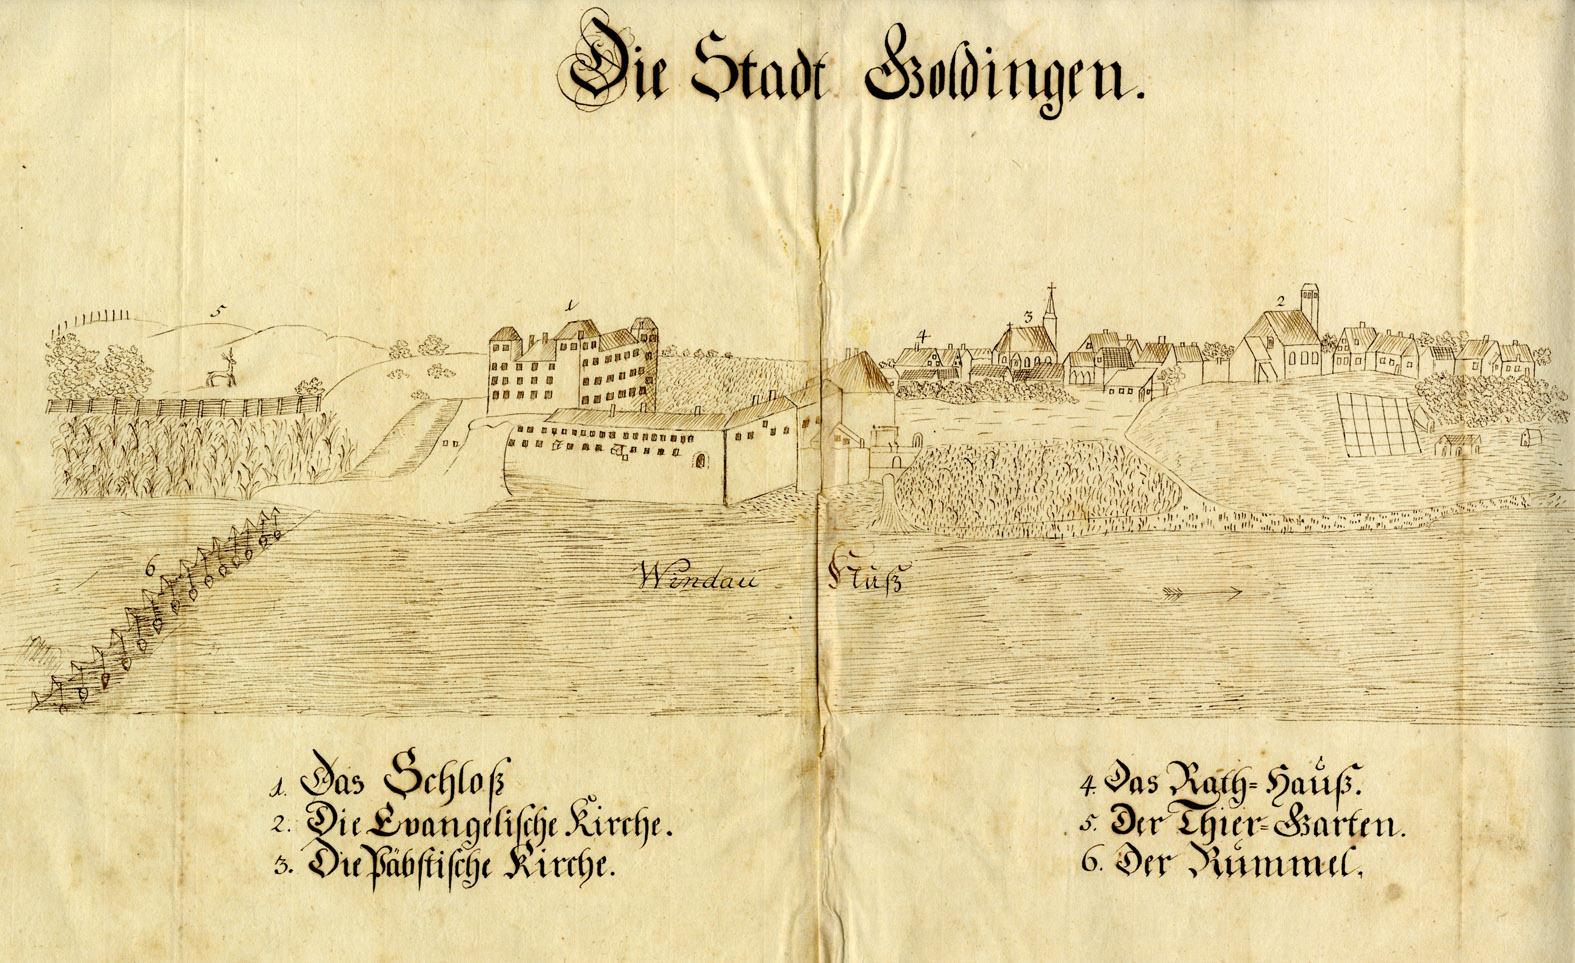 Die Stadt Goldingen.
5
1
4
3
2
6
Windau Fluß
1. Das Schloß
2. Die Evangelische Kirche.
3. Die Päbstische Kirche.
4. Das Rath=Hauß.
5. Der Thier=Garten.
6. Der Rummel.